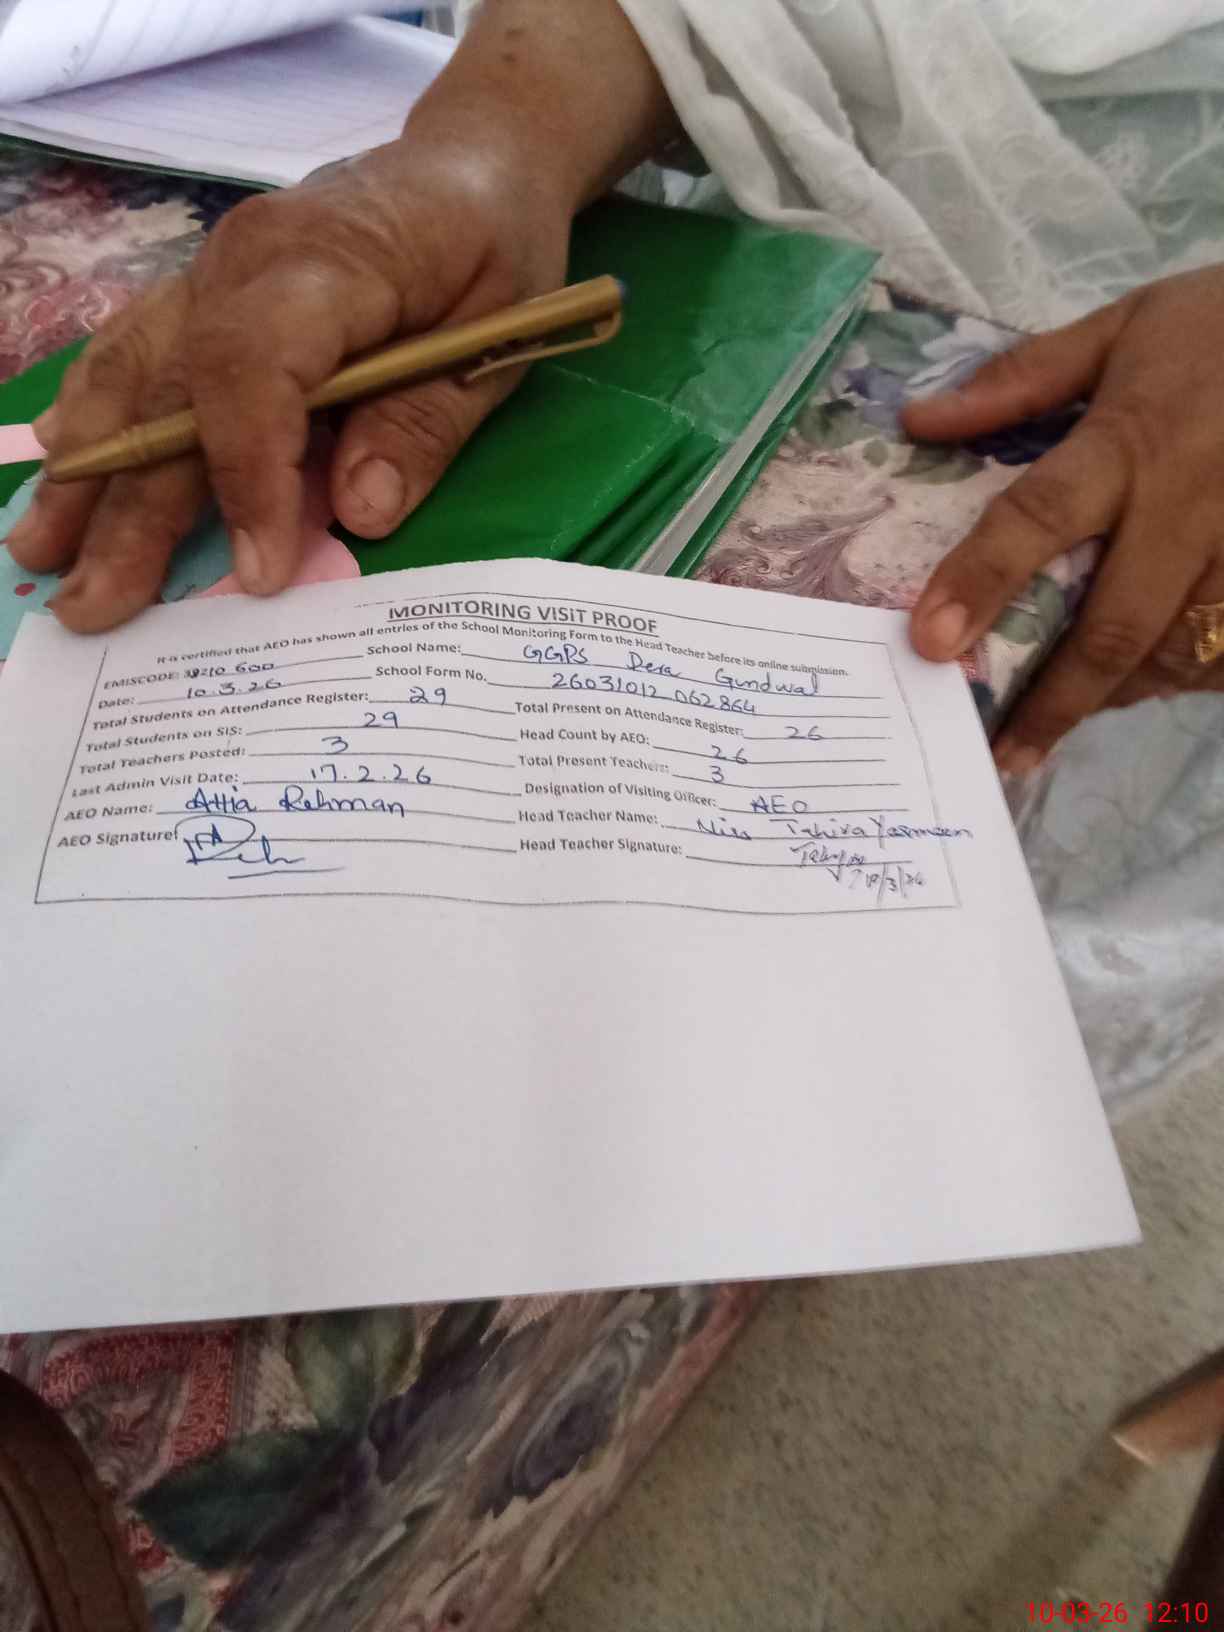 MONITORING VISIT PROOF
It is certified that AEO has shown all entries of the School Monitoring Form to the Head Teacher before its online submission.
EMISCODE: 38210 600 School Name: GGPS Dera Gundwal
Date: 10.3.26 School Form No. 26031012 062864
Total Students on Attendance Register: 29 Total Present on Attendance Register: 26
Total Students on SIS: 29 Head Count by AEO: 26
Total Teachers Posted: 3 Total Present Teachers: 3
Last Admin Visit Date: 17.2.26 Designation of Visiting Officer: AEO
AEO Name: Attia Rehman Head Teacher Name: Miss Tahira Yasmeen
AEO Signature: Head Teacher Signature:
10-03-26 12:10